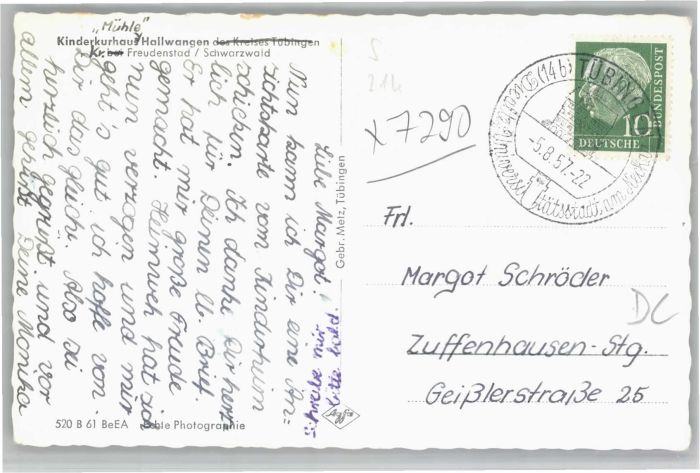 "Mühle"
Kinderkurhaus Hallwangen des Kreises Tübingen
Kr. Freudenstadt / Schwarzwald
Liebe Margot!
Nun kann ich Dir eine An=
sichtskarte vom Kinderheim
schicken. Ich danke Dir herz
lich für Deinen lb. Brief.
Er hat mir große Freude
gemacht. Heimweh hat sich
nun verzogen und mir
geht's gut ich hoffe von
Dir das gleiche. Also sei
herzlich gegrüßt und vor
allem geküsst Deine Monika
Schreibe mir
bitte bald.
520 B 61 BeEA Echte Photographie
Gebr. Metz, Tübingen
Agfa
S
214
x 7290
(14b) TÜBING
-5.8.57.-22
Universitätsstadt am Neckar
10
DEUTSCHE
BUNDESPOST
Frl.
Margot Schröder
DC
Zuffenhausen-Stg.
Geißlerstraße 25